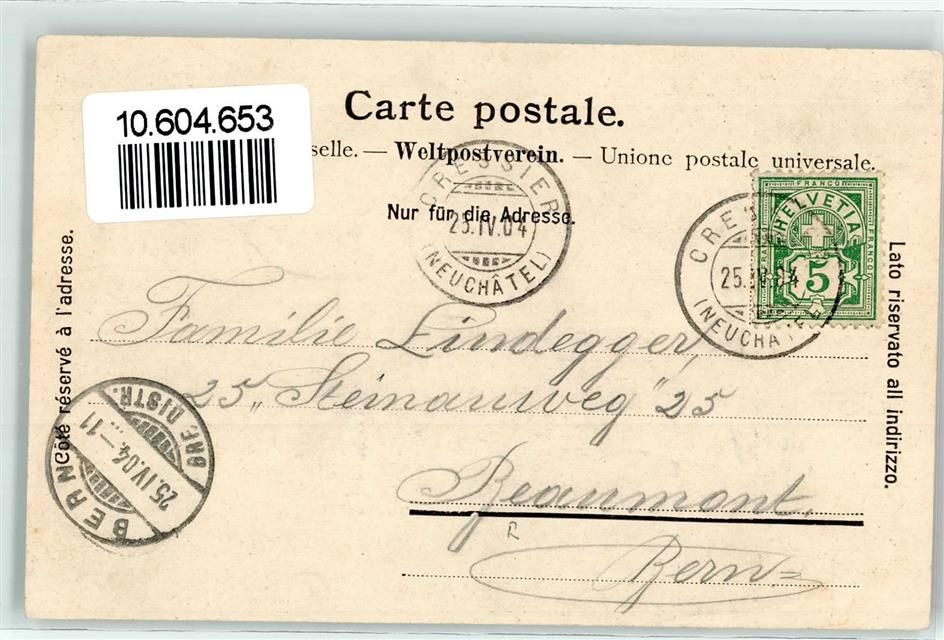 10.604.653
Carte postale.
selle. — Weltpostverein. — Unione postale universale.
Nur für die Adresse.
CRESSIER
25.IV.04
(NEUCHÂTEL)
CRESSIER
25.IV.04
(NEUCHÂTEL)
FRANCO
FRANCO
FRANCO
HELVETIA
5
Côté réservé à l'adresse.
Lato riservato all indirizzo.
Familie Lindegger,
25 „Steinauweg" 25
Beaumont.
R
Bern=
BERN
25.IV.04.–11
BRF. DISTR.